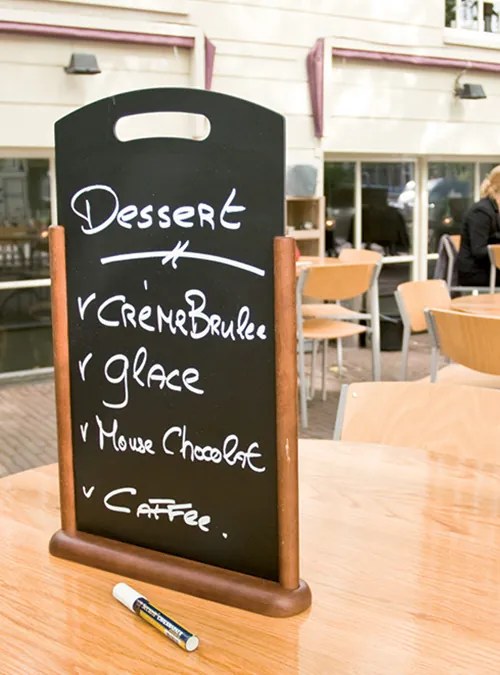 Dessert
✓ Crème Brulee
✓ glace
✓ Mouse Chocolat
✓ Caffee.